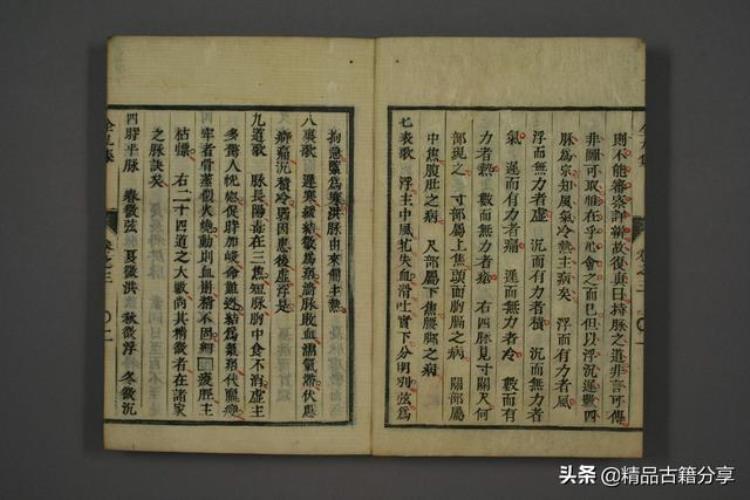 則不能審察詳新故復真曰持脉之道非言可傳
非圖可取惟在乎心會之而已但以浮沉遲數四
脉為宗知風氣冷熱主病矣 浮而有力者風
浮而無力者虛 沉而有力者積 沉而無力者
氣 遲而有力者痛 遲而無力者冷 數而有
力者熱 數而無力者瘡 右四脉見寸關尺何
部現之 寸部屬上焦頭面胸膈之病 關部屬
中焦腹肚之病 尺部屬下焦腰脚之病
七表歌 浮主中風芤失血滑吐實下分明列弦為
拘急緊為寒洪脉由來偏主熱
八裏歌 遲寒緩結微為痞濇脉敗血濡氣滯伏應
癖痛沉積冷弱因應後虛浮是
九道歌 脉長陽毒在三焦短脉胸中食不消虛主
多驚人恍惚促脉加歧命難逃結為氣痞代
牢者骨蒸 火 動則血崩精不固細 痠脛主
枯 右二十四道之大數尚其精微者在諸家
之脉訣矣
四時平脉 春微弦 夏微洪 秋微浮 冬微沉
卷之三
頭条 @精品古籍分享